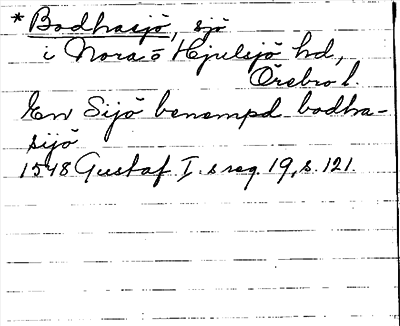 *Bodhasjö, sjö
i Nora o Hjulsjö hd,
Örebro l.
En Sijö benempd bodha-
sijö
1548 Gustaf I.s reg. 19, s. 121.